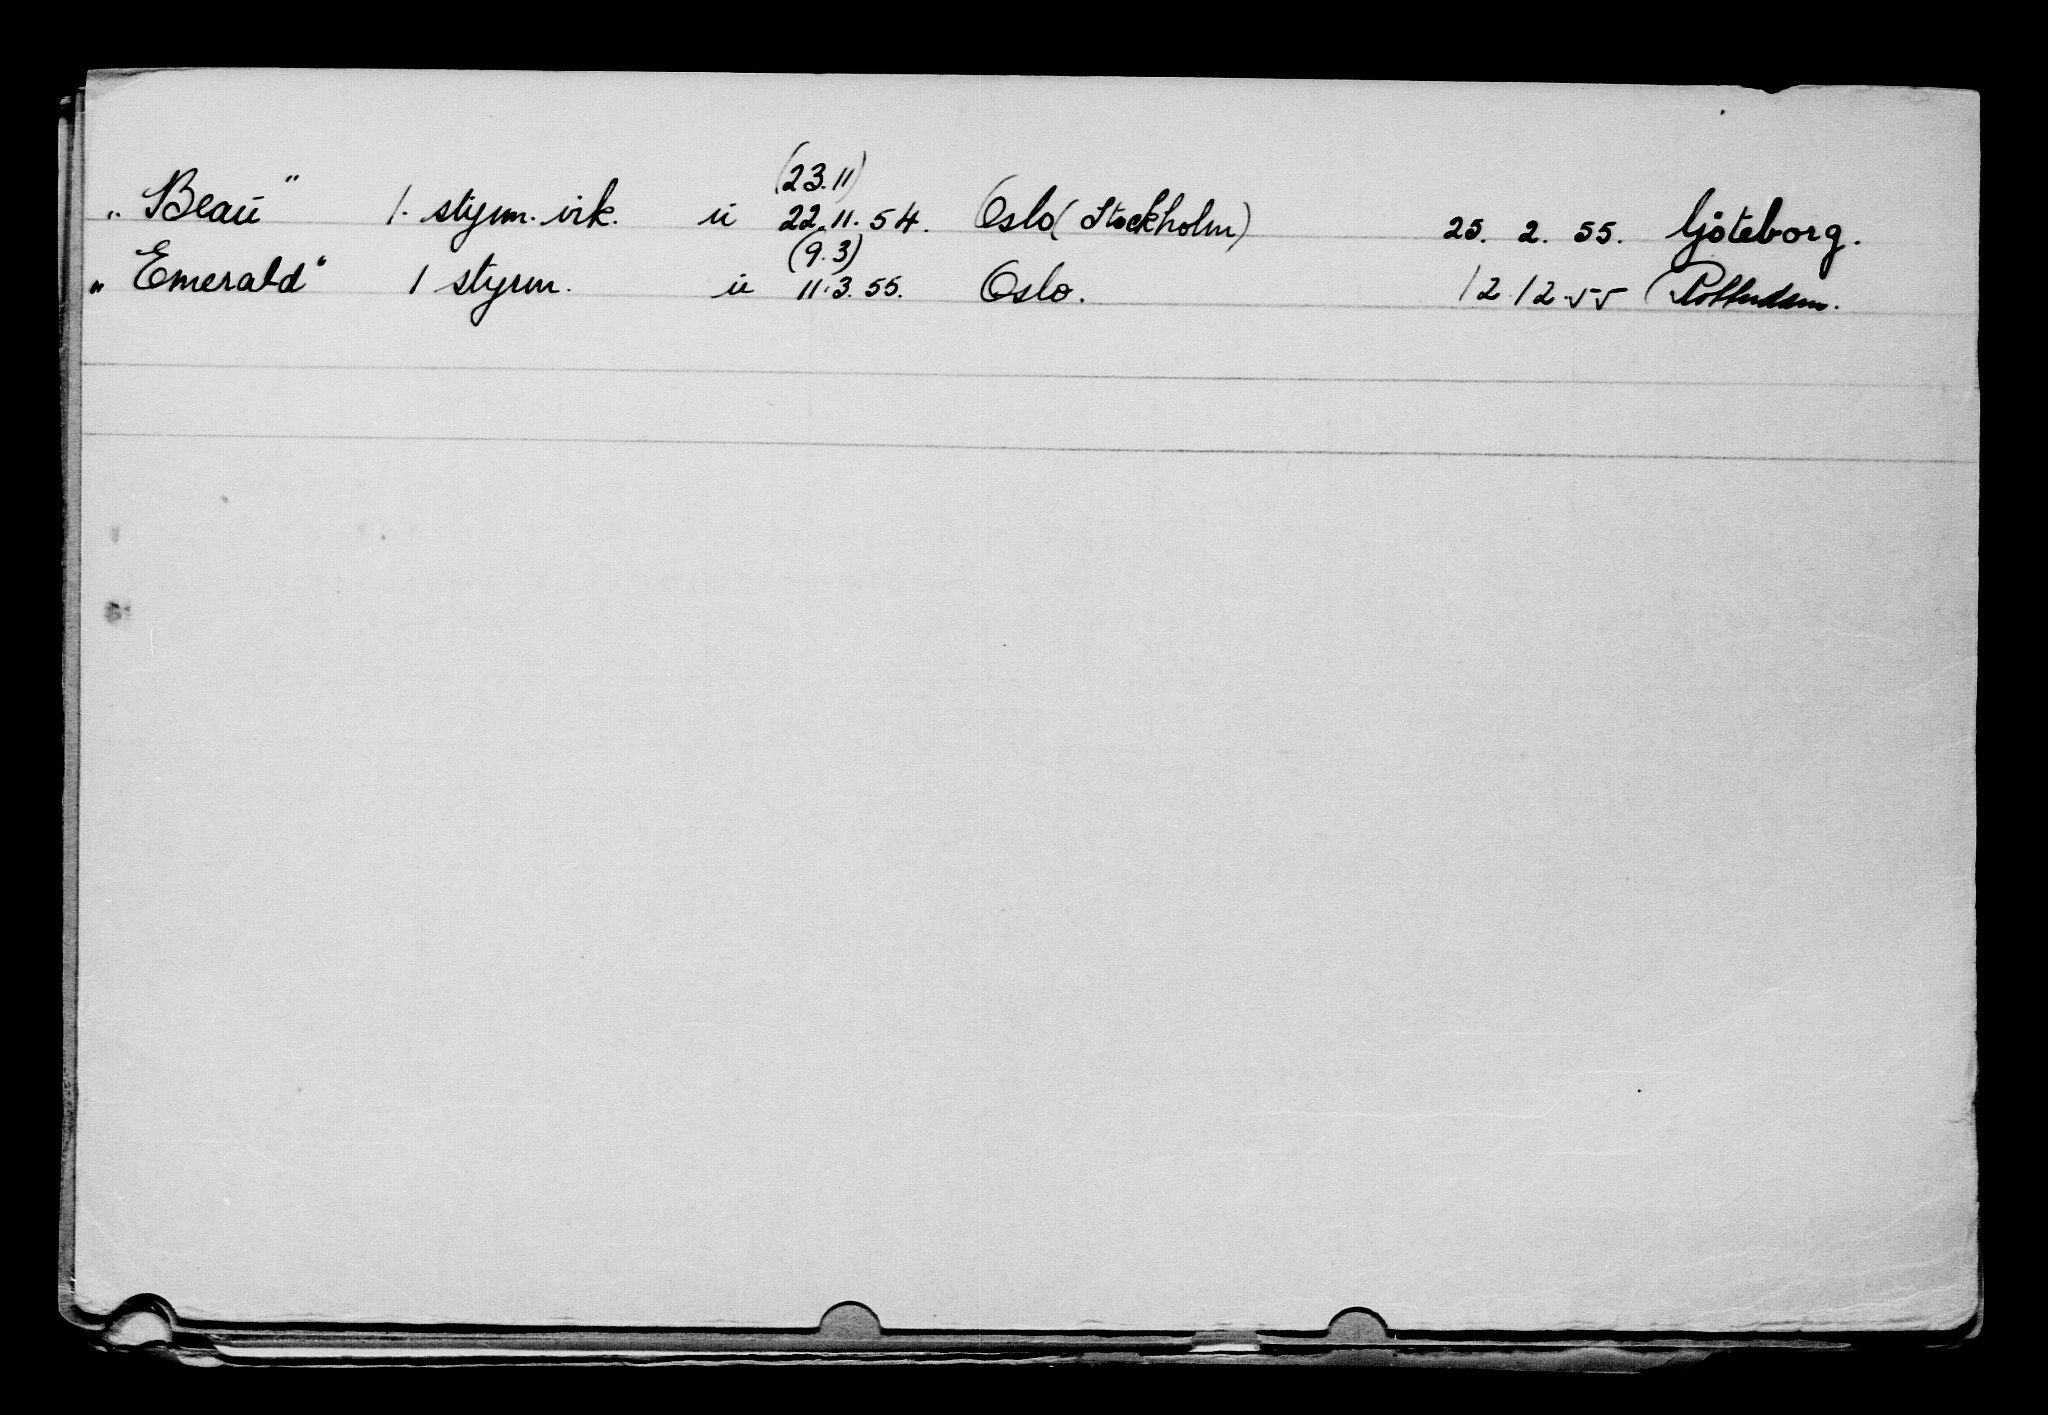 (23.11)
„Beau" 1. styrm. vik. u 22.11.54. Oslo (Stockholm) 25. 2. 55. Göteborg.
(9.3)
„Emerald" 1 styrm. u 11.3.55. Oslo. 12 12-55 Rotterdam.